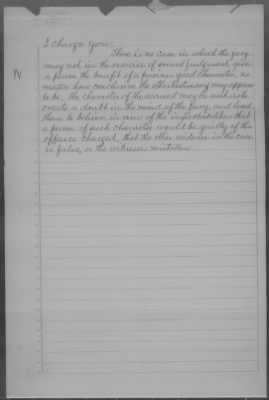 I charge you:
There is no case in which the jury
IV
may not in the exercise of sound judgment, give
a prisoner the benefit of a previous good character, no
matter how conclusive the other testimony may appear
to be; the character of the accused may be such as to
create a doubt in the mind of the jury, and lead
them to believe, in view of the improbabilities that
a person of such character would be guilty of the
offence charged, that the other evidence in the case
is false, or the witnesses mistaken